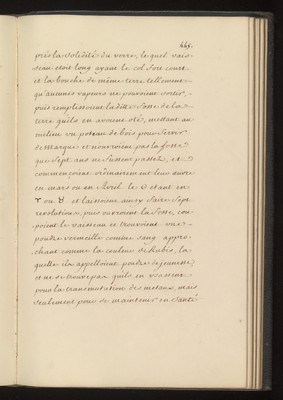 445.
près la solidité du verre, lequel vais-
seau étoit long ayant le col fort court
et la bouche de même terre tellement
qu'aucunes vapeurs ne pouvoient sortir,
puis remplissoient la ditte fosse de la
terre quils en avoient oté, mettant au
milieu un poteau de bois pour servir
de marque et n'ouvroient pas la fosse
que sept ans ne fussent passés, et
commençoient ordinairement leur œuvre
en mars ou en Avril le ☉ etant en
♈ ou ♉ et laissoient ainsy faire sept
revolutions, puis ouvroient la fosse, cou-
poient le vaisseau et trouvoient une
poudre vermeille comme sang appro-
chant comme la couleur de Rubis, la
quelle ils appelloient poudre de jeunesse
et ne se trouve pas quils en usassent
pour la transmutation des metaux, mais
seulement pour se maintenir en santé